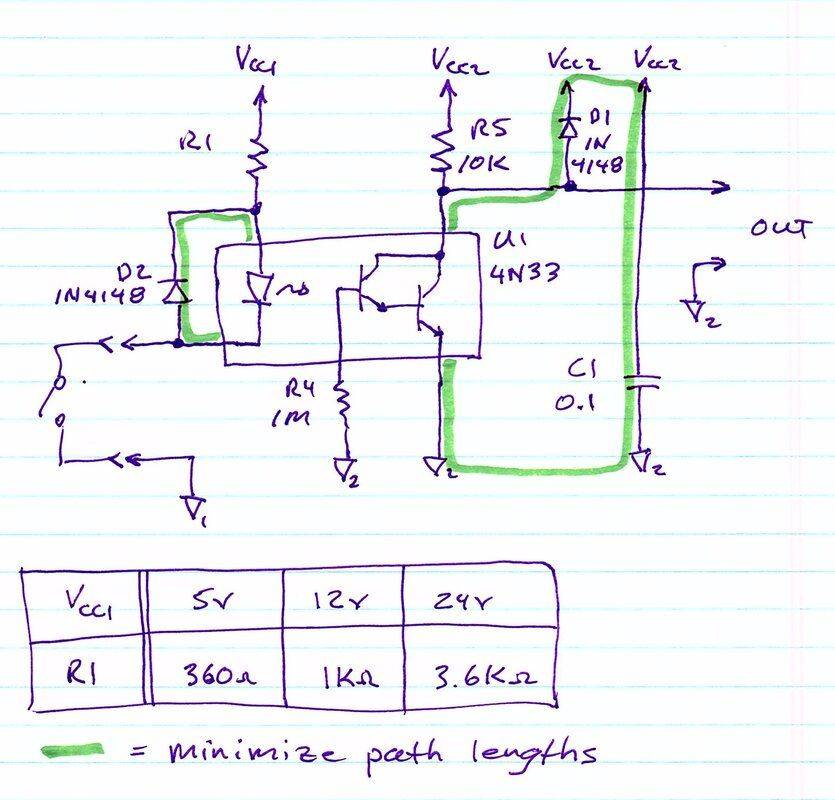 Vcc1
Vcc2
Vcc2
Vcc2
R1
R5
10K
D1
1N
4148
OUT
U1
4N33
D2
1N4148
2
C1
0.1
R4
1M
2
2
2
1
Vcc1 5V 12V 24V
R1 360Ω 1KΩ 3.6KΩ
= minimize path lengths